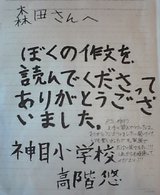 森田さんへ
ぼくの作文を、
読んでくださって
ありがとうござい
ました。
神目小学校
高階悠